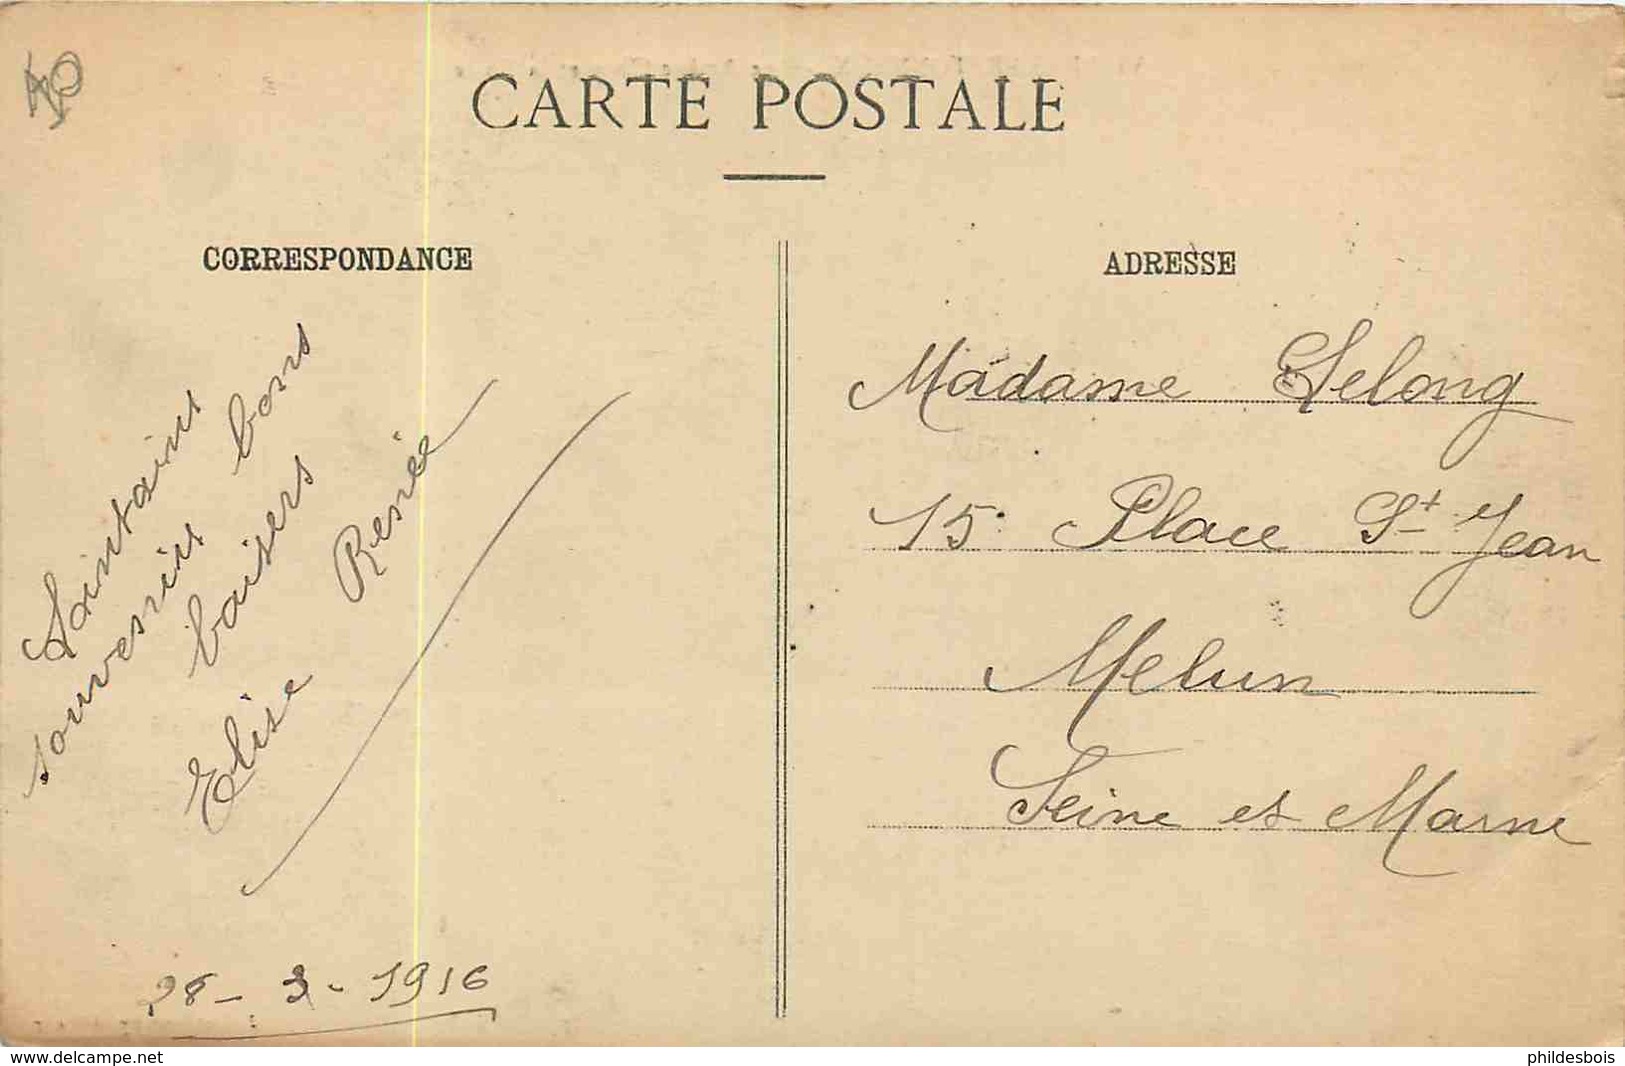 CARTE POSTALE
CORRESPONDANCE
Lointains
souvenirs bons
baisers
Elise Renée
28-3-1916
ADRESSE
Madame Lelong
15 Place St Jean
Melun
Seine et Marne
www.delcampe.net
phildesbois